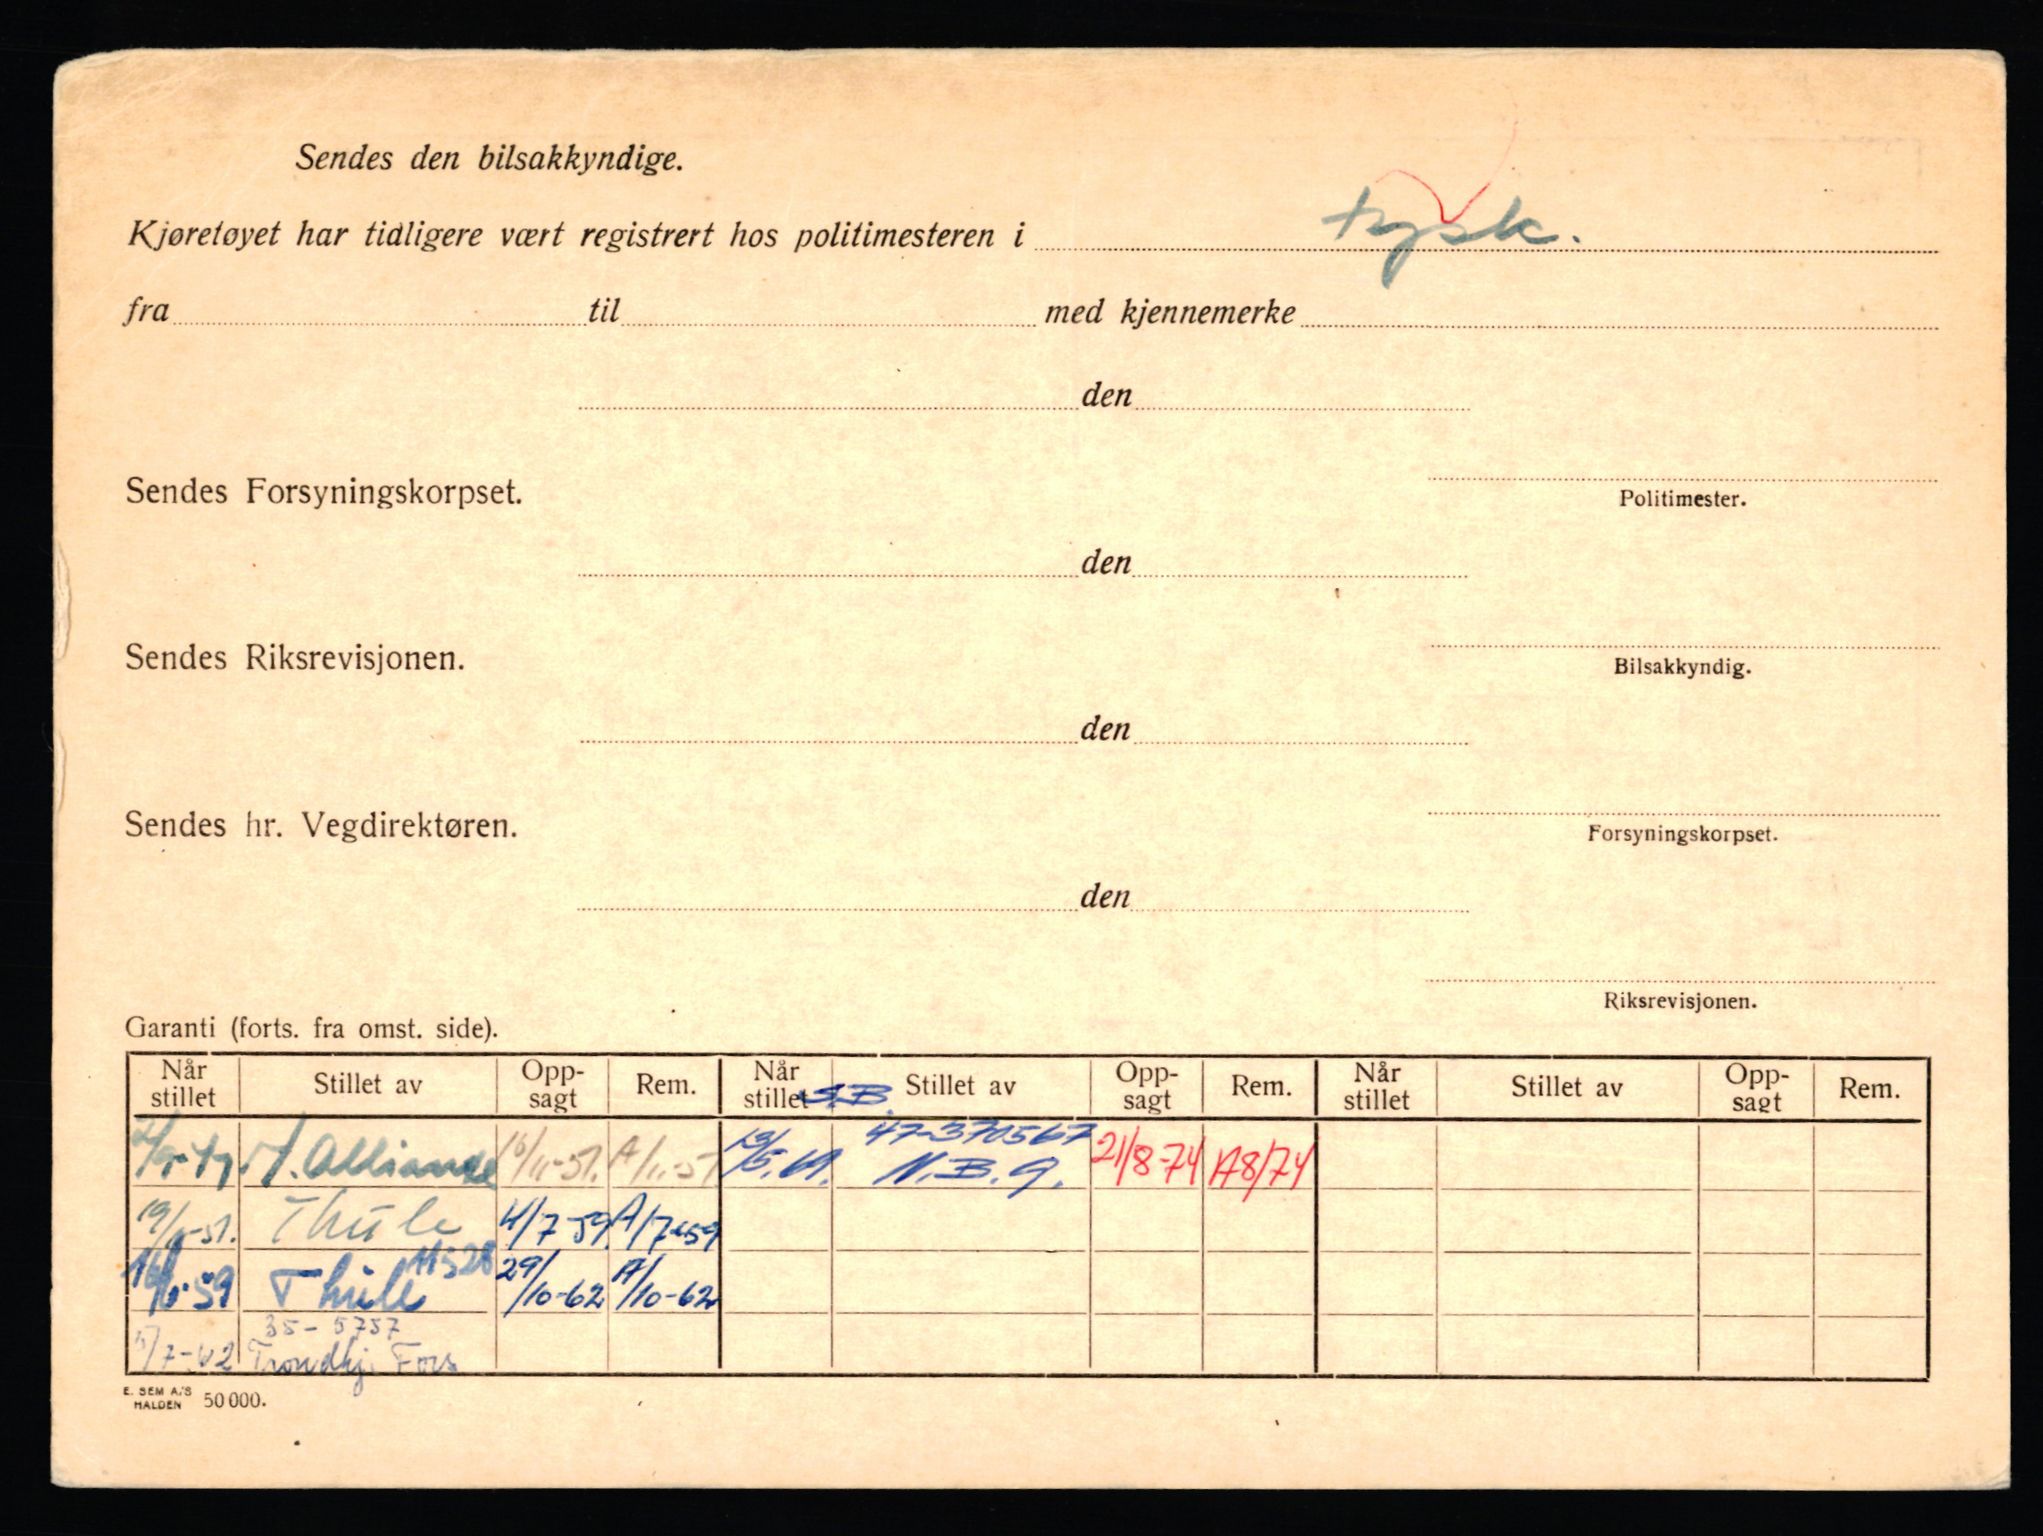 Sendes den bilsakkyndige.
Kjøretøyet har tidligere vært registrert hos politimesteren i tysk.
fra til med kjennemerke
den
Sendes Forsyningskorpset.
Politimester.
den
Sendes Riksrevisjonen.
Bilsakkyndig.
den
Sendes hr. Vegdirektøren.
Forsyningskorpset.
den
Riksrevisjonen.
Garanti (forts. fra omst. side).
Når stillet Stillet av Opp-sagt Rem. Når stillet Stillet av Opp-sagt Rem. Når stillet Stillet av Opp-sagt Rem.
S.B.
47-370567
Allianse 16/11-51. A/11-51. N.B.G. 21/8-74 A8/74
Thule 4/7-59 A/7-59
11528
Thule 29/10-62 A/10-62
35-5757
Trondhj. Fors
E. SEM A/S
HALDEN 50 000.